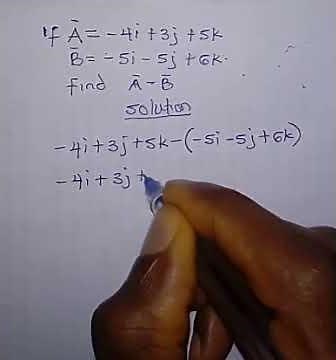 If Ā = -4i + 3j + 5k
B̄ = -5i - 5j + 6k.
Find Ā - B̄
solution
-4i + 3j + 5k - (-5i - 5j + 6k)
-4i + 3j +